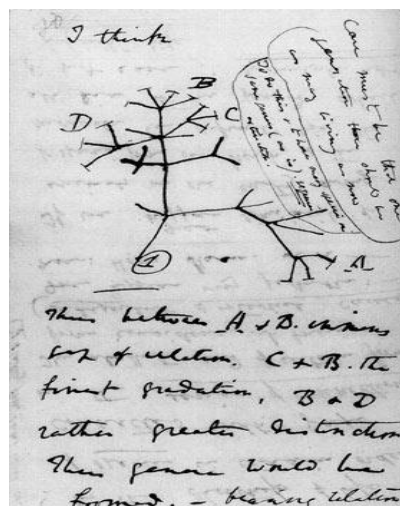 I think
B
C
D
A
1
Case must be that one
generation then should be
as many living as now
To do this & to have many species in
same genus (as is) requires
extinction.
Thus between A & B. immense
gap of relation. C & B. the
finest gradation, B & D
rather greater distinction
Thus genera would be
formed. — bearing relation